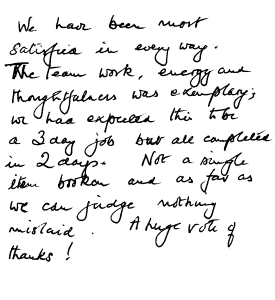 We have been most
satisfied in every way.
The team work, energy and
thoughtfulness was exemplary;
we had expected this to be
a 3 day job but all completed
in 2 days. Not a single
item broken and as far as
we can judge nothing
mislaid. A huge vote of
thanks!